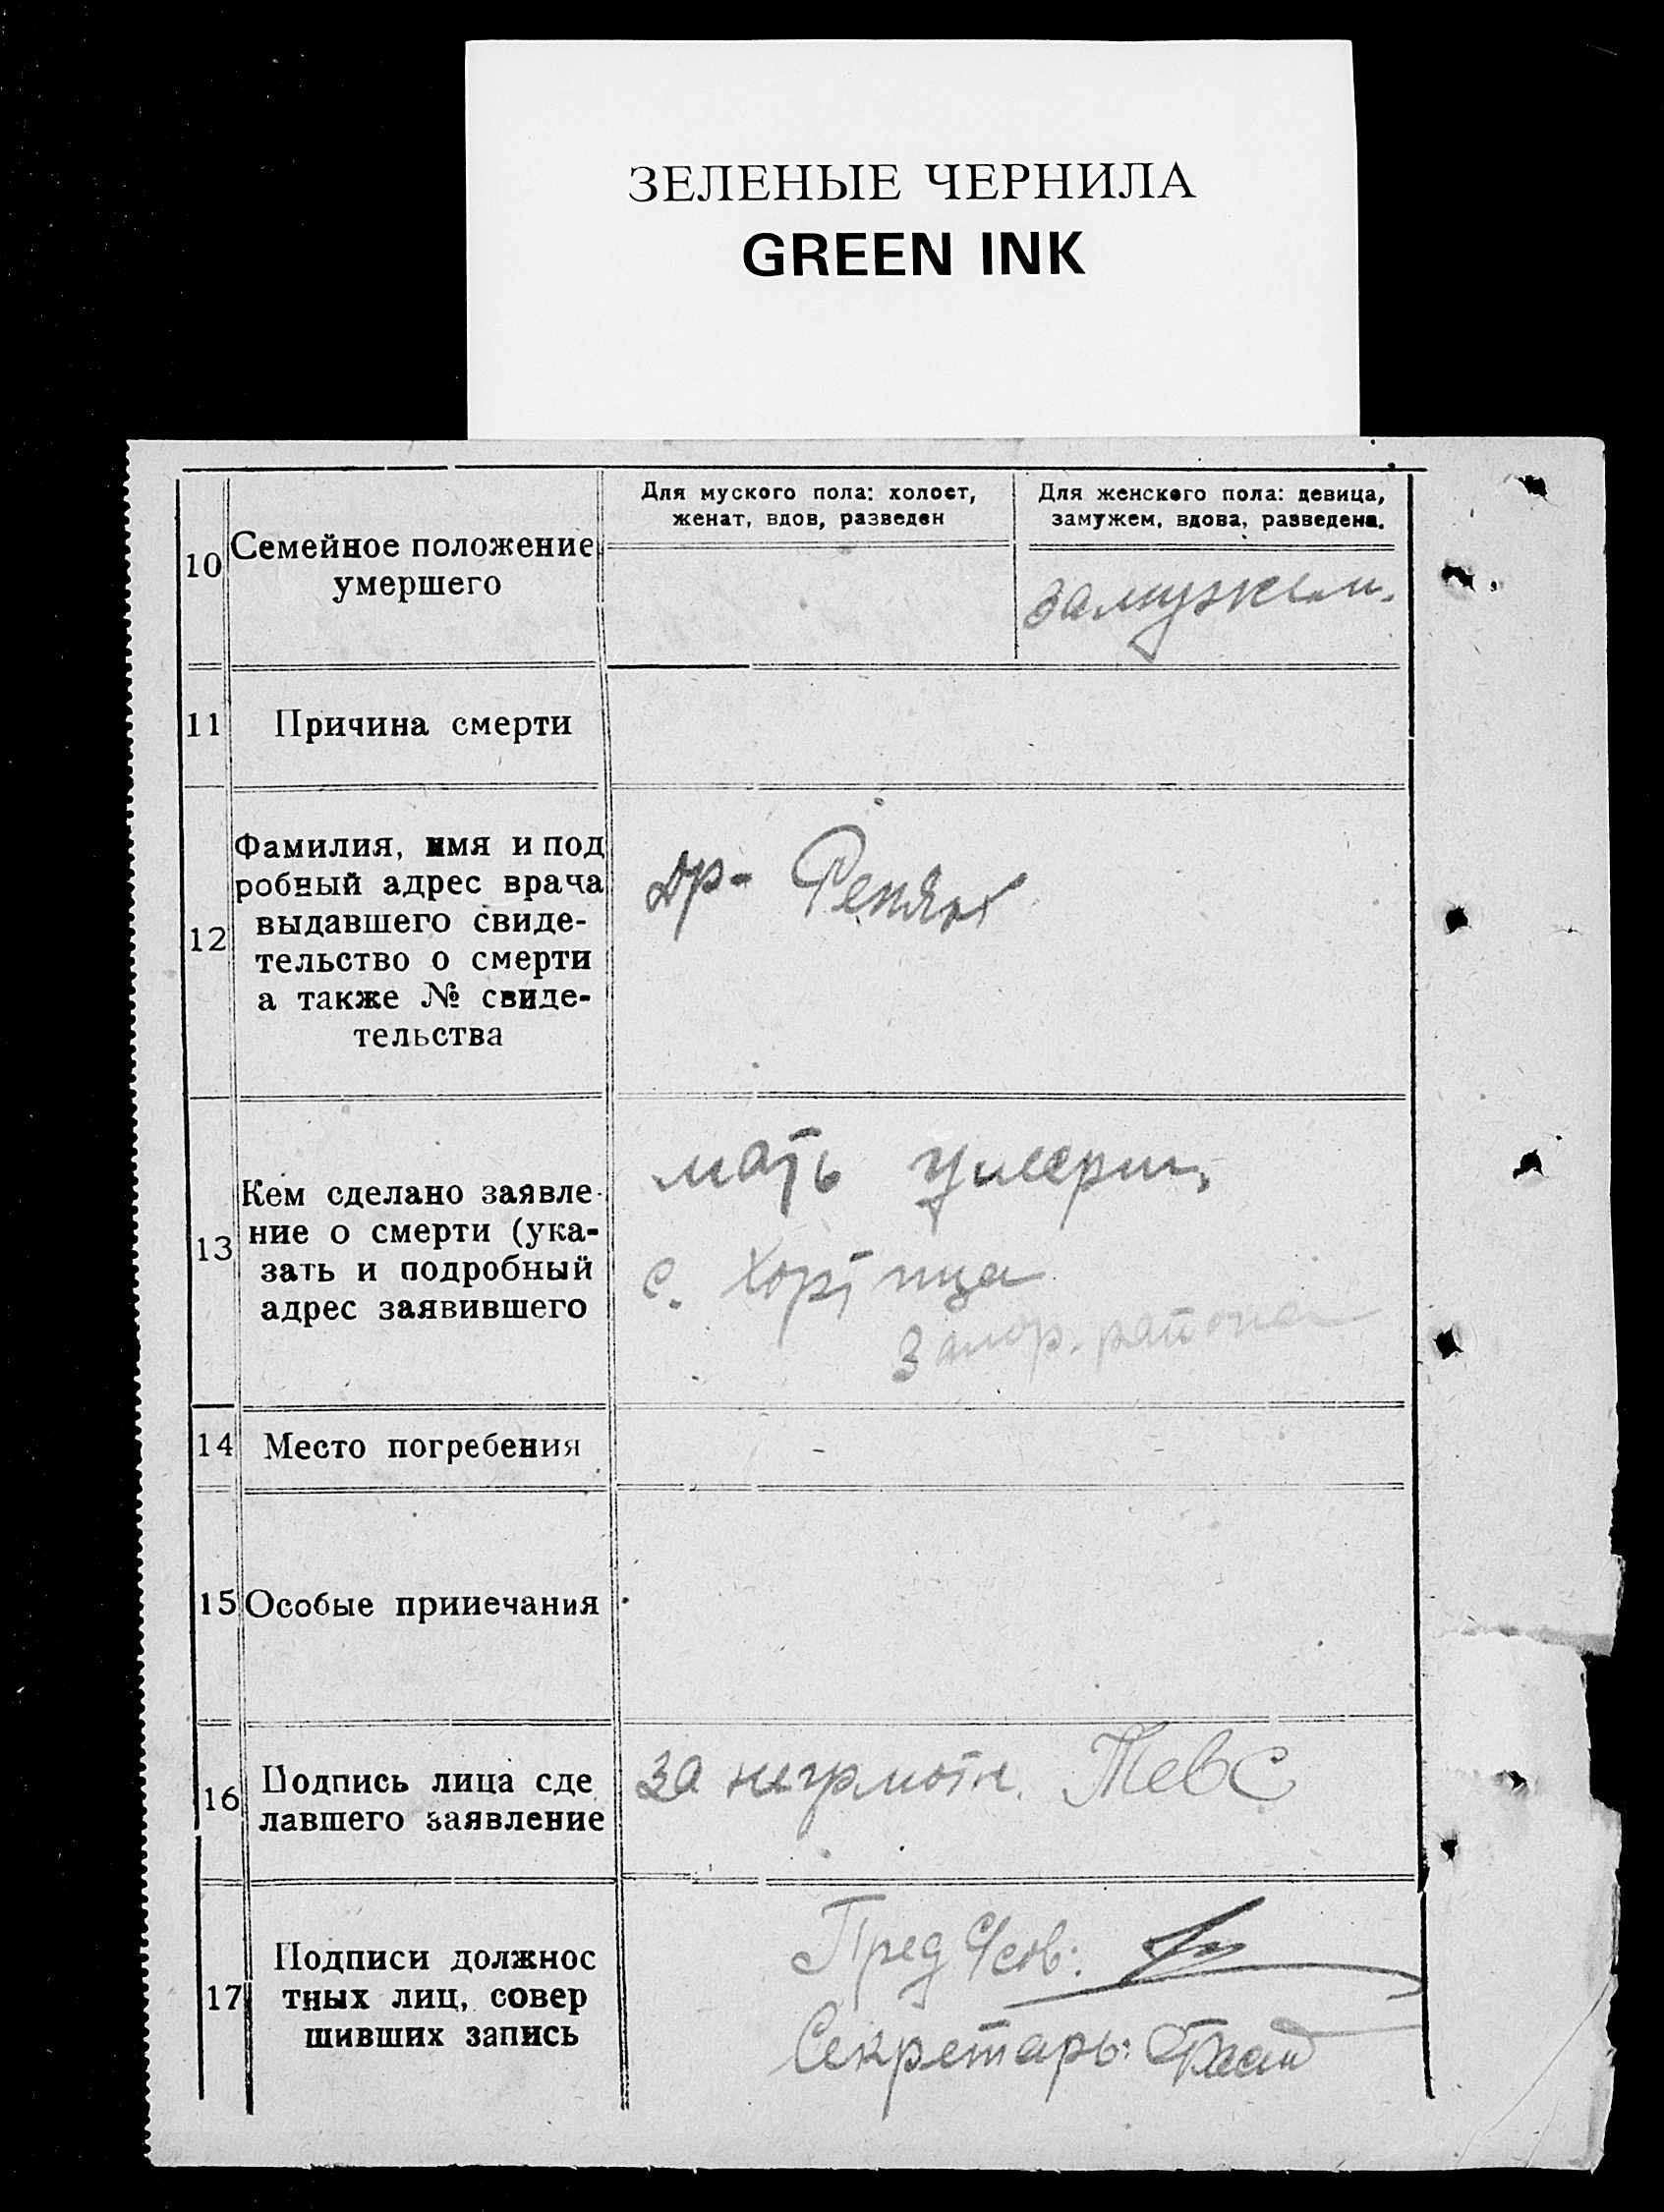 ЗЕЛЕНЫЕ ЧЕРНИЛА
GREEN INK
10
Семейное положение
умершего
Для муского пола: холост,
женат, вдов, разведен
Для женского пола: девица,
замужем, вдова, разведена.
замужем.
11
Причина смерти
12
Фамилия, имя и под
робный адрес врача
выдавшего свиде-
тельство о смерти
а также № свиде-
тельства
др-
13
Кем сделано заявле-
ние о смерти (ука-
зать и подробный
адрес заявившего
мать умерш.
с. Хортица
Запор. района
14
Место погребения
-
15
Особые прииечания
16
Подпись лица сде
лавшего заявление
за негрмотн. Тевс
17
Подписи должнос
тных лиц, совер
шивших запись
Пред с/сов:
Секретарь: